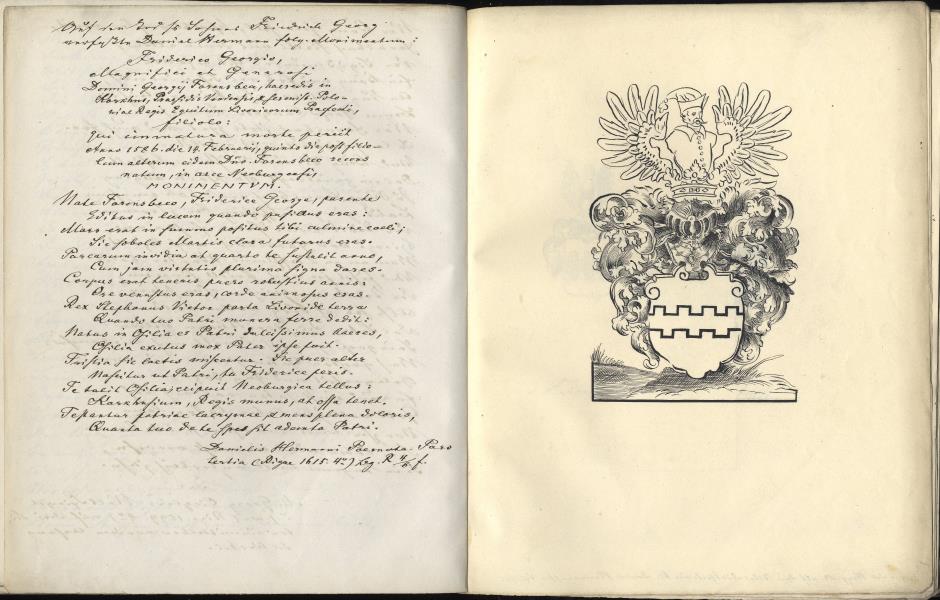 Auf den Tod s. Sohnes Friedrich Georg
verfaßte Daniel Hermann folg. Monimentum:
Friderico Georgio,
Magnifici et Generosi
Domini Georgij Farensbeca, haeredis in
Karkhus, Praesidis Vendensis, & sereniss. Polo-
niae Regis Equitum Livonicorum Praefecti,
filiolo:
Qui immatura morte periit
Anno 1586. die 14. Februarij, quinto die post filio-
lum alterum eidem Dño. Farensbeco recens
natum, in arce Neoburgensi,
MONIMENTVM.
Nate Farensbeco, Friderice George, parente
Editus in lucem quando pusillus eras:
Mars erat in summo positus tibi culmine coeli;
Sic soboles Martis clara futurus eras.
Parcarum invidia at quarto te sustulit anno,
Cum jam virtutis plurima signa dares.
Corpus erat teneris puero robustius annis:
Ore venustus eras, corde animosus eras.
Rex Stephanus Victor parta Livonide terra
Quando tuo Patri munera ferre dedit:
Natus in Osilia es Patri dulcissimus haeres,
Osilia exutus mox Pater ipse fuit.
Tristia sic laetis miscentur. Sic puer alter
Nascitur ut Patri, tu Friderice peris.
Te tulit Osilia; eripuit Neoburgica tellus:
Karkhusium, Regis munus, at ossa tenet.
Testantur patriae lacrymae & mens plena doloris,
Quanta tuo de te spes sit ademta Patri.
Danielis Hermanni Poemata. Pars
tertia (Rigae 1615. 4º)